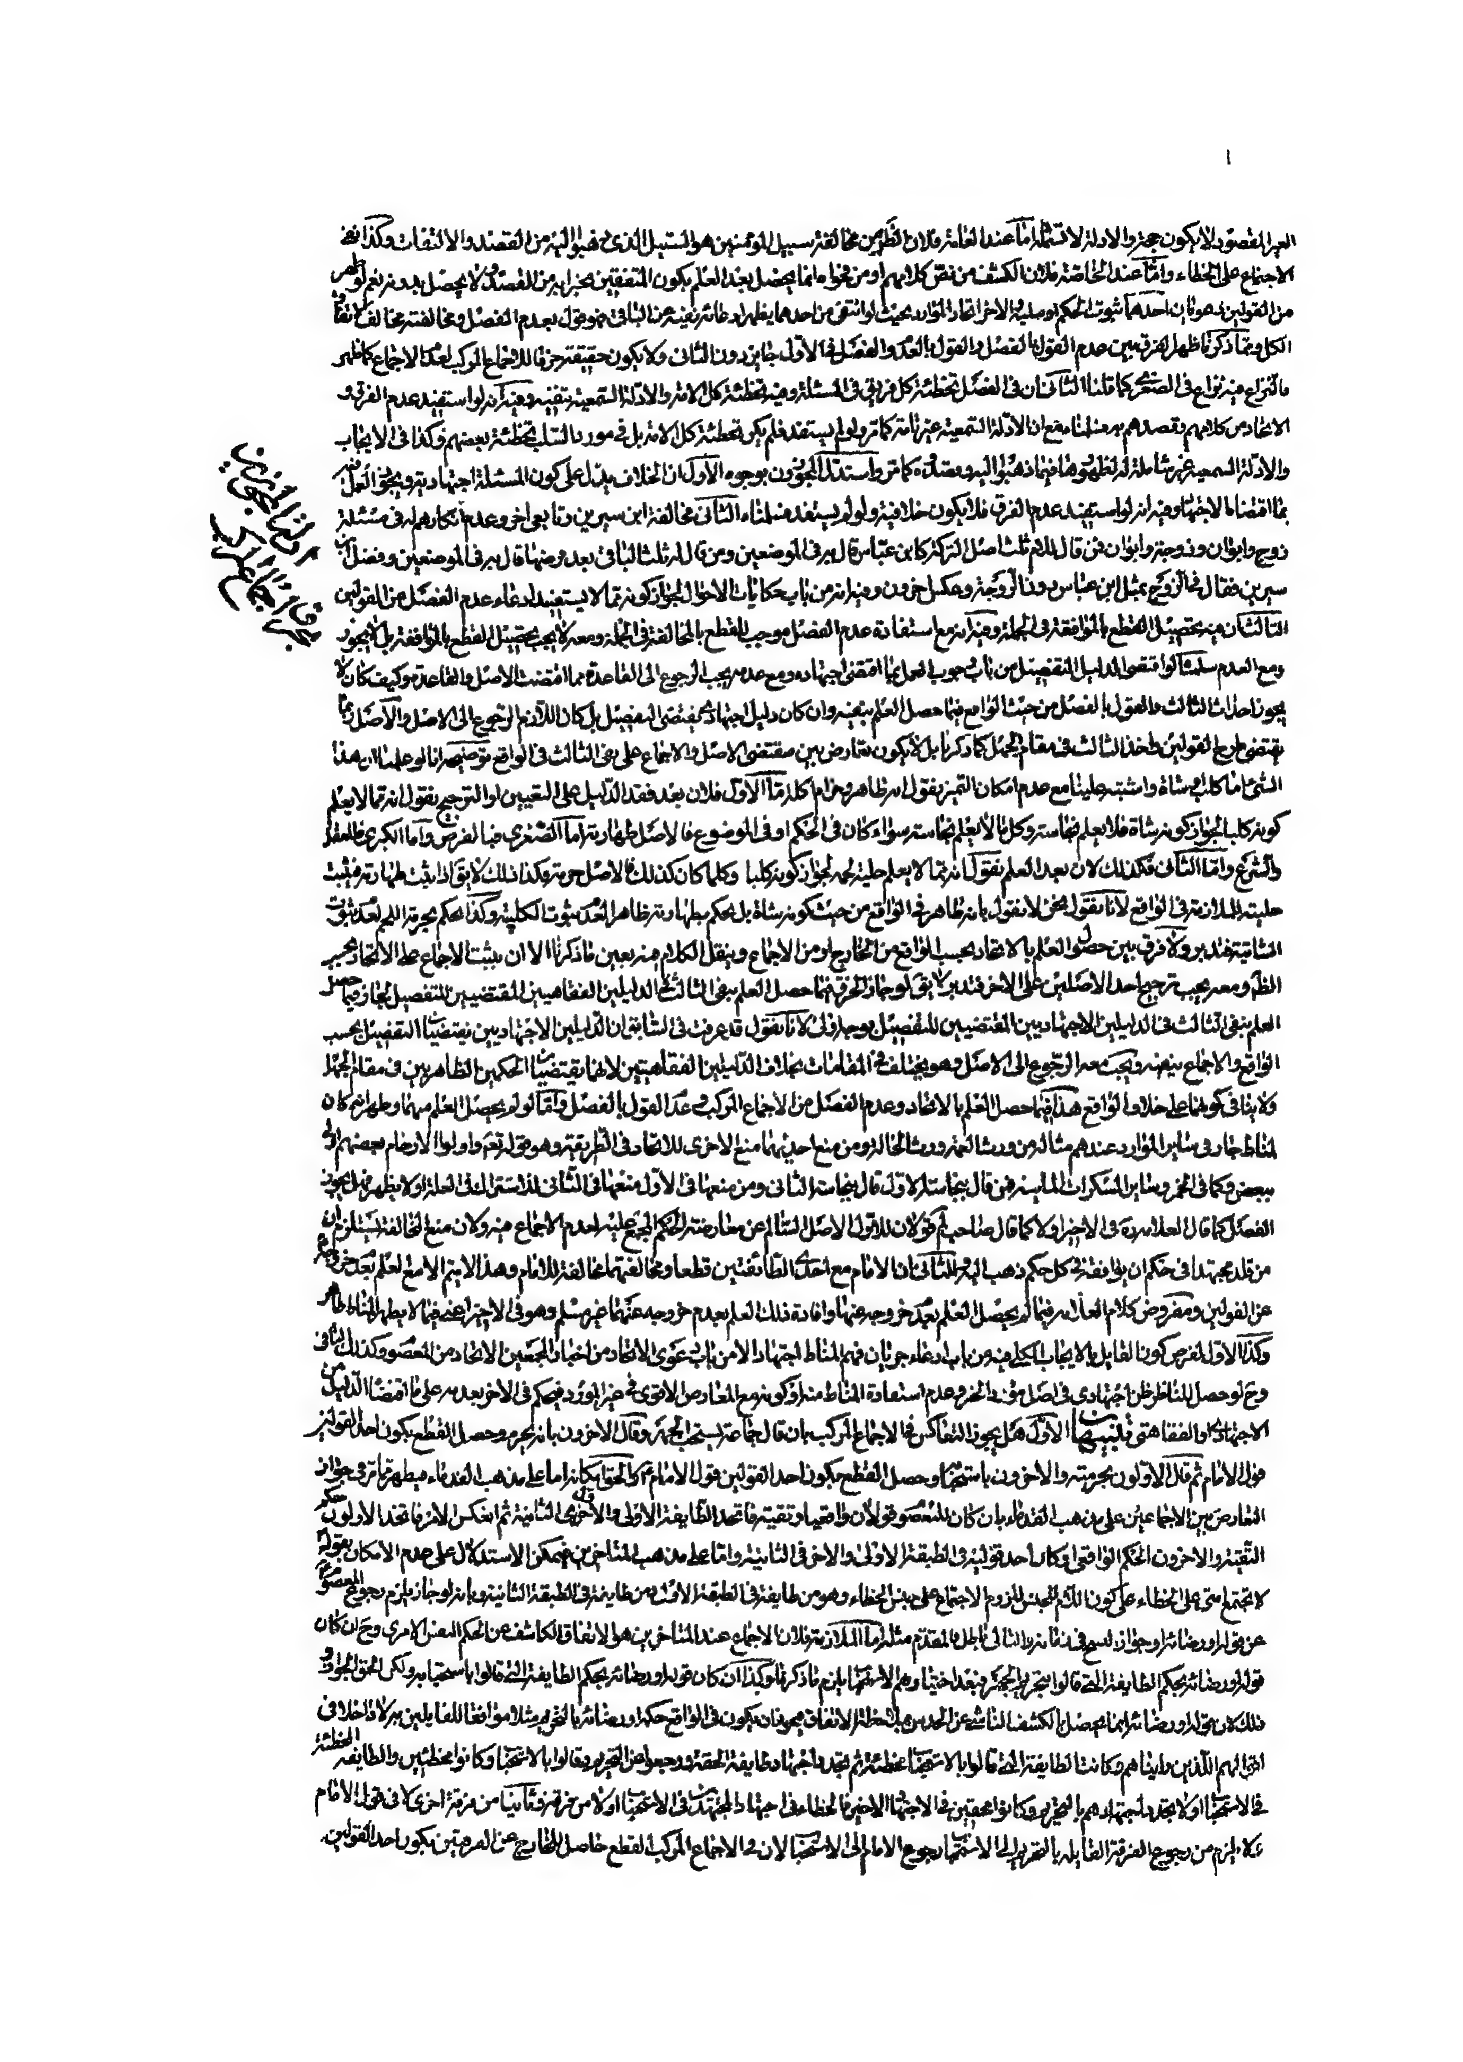 الغير المقصود لا يكون حجة والادلة لا تشمله اما عند العامة فلان الظاهر من مخالفة سبيل المؤمنين هو السبيل الذى ذهبوا اليه من القصد والالتفات وكذا
الاجتماع على الخطاء واما عند الخاصة فلان الكشف من نص كلامهم او من فحواه انما يحصل بعد العلم بكون المتفقين لا يحصل بدونه نعم لو ظهر
من القولين دعويان احدهما ثبوت الحكم الاخر اتحاد الموارد بحيث لو انتفى من احدهما يظهر نفيه عن الباقى فهو قول بعدم الفصل ومخالفته مخالف لاتفاق
الكل ومما ذكرنا ظهر الفرق بين عدم القول بالفصل والقول بالعدم والفصل فى الاول جايز دون الثانى ولا يكون حقيقة خرقا للاجماع المركب لعدم الاجماع كما ظهر
كما قلنا الثانى ان فى الفصل تخطئة كل فريق فى المسئلة وفيه تخطئة كل الامة والادلة السمعية تنفيه وفيه انه لو استفيد عدم الفرق و
الاتحاد من كلامهم وقصدهم مع ان الادلة السمعية غير تامة كما مر ولو لم يستفد فلم يكن تخطئة كل الامة بل فى مورد السلب تخطئة بعضهم وكذا فى الايجاب
والادلة السمعية غير شاملة له لظهورها فيما ذهبوا اليه وقصدوه كما مر واستدل المجوزون بوجوه الاول ان الخلاف يدل على كون المسئلة اجتهادية ويجوز العمل
بما اقتضاه الاجتهاد وفيه انه لو استفيد عدم الفرق فلا يكون خلافية ولو لم يستفد الثانى مخالفة ابن سيرين وتابعى اخر وعدم انكارهم له فى مسئلة
زوج وابوان وزوجة وابوان فمن قال للام ثلث اصل التركة كابن عباس قال به فى الموضعين ومن قال له ثلث الباقى بعد فرضها قال به فى الموضعين وفصل ابن
سيرين فقال فى الزوج بمثل ابن عباس دون الزوجة وعكس اخرون وفيه انه من باب حكايات الاحوال لجواز كونه مما لا يستفيد ادعاء عدم الفصل من القولين
الثالث ان فيه تحصيل القطع بالموافقة فى الجملة وفيه انه مع استفادة عدم الفصل موجب للقطع بالمخالفة فى الجملة ومعه لا يجب تحصيل القطع بالموافقة بل لا يجوز
ومع العدم سلمنا لو اقتضى الدليل التفصيل من باب وجوب العمل بما اقتضى اجتهاده ومع عدمه يجب الرجوع الى القاعدة مما اقتضت الاصل والقاعدة وكيف كان لا
يجوز احداث الثالث والقول بالفصل من حيث الواقع فيما حصل العلم بنفيه وان كان دليل اجتهادى يقتضى التفصيل بل كان اللازم الرجوع الى الاصل والاصل
يقتضى طرح القولين واخذ الثالث فى مقام الجهل كما ذكرنا بل لا يكون تعارض بين مقتضى الاصل والاجماع على نفى الثالث فى الواقع توضيحه انا لو علمنا ان هذا
الشئ اما كلب او شاة واشتبه علينا مع عدم امكان التميز نقول انه طاهر وحرام اكله اما الاول فلان بعد فقد الدليل على التعيين او الترجيح نقول انه مما لا يعلم
كونه كلبا لجواز كونه شاة فلا يعلم نجاسته وكل ما لا يعلم نجاسته سواء كان فى الحكم او فى الموضوع فالاصل طهارته اما الصغرى فبالفرض واما الكبرى
والشرع واما الثانى فكذلك لان بعد العلم نقول انه مما لا يعلم حلية لحمه لجواز كونه كلبا وكلما كان كذلك فالاصل حرمته وكذا ذلك لا يق اذا ثبت طهارته فيثبت
حليته للملازمة فى الواقع لانا نقول نحن لا نقول بانه طاهر فى الواقع من حيث كونه شاة بل يحكم بطهارته ظاهرا لعدم ثبوت الكلبية وكذا الحكم بحرمة اللحم لعدم ثبوت
الشاتية فتدبر ولا فرق بين حصول العلم بالاتحاد بحسب الواقع من الخارج او من الاجماع وينقل الكلام فيه بعين ما ذكرنا الا ان يثبت الاجماع على الاتحاد بحسب
الظاهر ومعه يجب ترجيح احد الاصلين على الاخر فتدبر لا يق لو جاز الخرق فيما حصل العلم بنفى الثالث فى الدليلين الفقاهيين المقتضيين للتفصيل لجاز فيما حصل
العلم بنفى الثالث فى الدليلين الاجتهاديين المقتضيين للتفصيل بوجه اولى لانا نقول قد عرفت فى السابق ان الدليلين الاجتهاديين يقتضيان التفصيل بحسب
الواقع والاجماع ينفيه ويجب معه الرجوع الى الاصل وهو يختلف فى المقامات بخلاف الدليلين الفقاهيين لانهما يقتضيان الحكمين الظاهريين فى مقام الجهل
ولا ينافى كونهما على خلاف الواقع هذا فيما حصل العلم بالاتحاد وعدم الفصل من الاجماع المركب وعدم القول بالفصل واما لو لم يحصل العلم منهما وظهر انه كان
لمناط جار فى ساير الموارد عندهم مثاله من ورث العمة ورث الخالة ومن منع احديهما منع الاخرى للاتحاد فى الطريقة وهو قوله تعالى واولوا الارحام بعضهم اولى
ببعض وكما فى الخمر وساير المسكرات المايعة فمن قال بنجاسة الاول قال بنجاسة الثانى ومن منعها فى الاول منعها فى الثانى فهل يجوز
الفصل كما قال العلامة ره فى الاخير اولا كما قال صاحب لم قولان للاول الاصل السالم عن معارضة الحكم المجمع عليه لعدم الاجماع فيه ولان منع المخالفة يستلزم ان
من قلد مجتهدا فى حكم ان يوافقه فى كل حكم ذهب اليه وللثانى ان الامام مع احدى الطائفتين قطعا ومخالفتهما مخالفة للامام وهذا لا يتم الا مع العلم بعدم خروجه
عن القولين ومفروض كلام العلامة فيما لم يحصل العلم بعدم خروجه عنهما وافادة ذلك العلم بعدم خروجه عنهما غير مسلم وهو فى الاخير فيما لا يظهر المناط ظاهر
وكذا الاول لفرض كون القايل بالايجاب الكلى فيه من باب ادعاء جريان فهم المناط اجتهادا لا من باب دعوى الاتحاد من اخبار المجمعين الاتحاد من المعصوم وكذلك النافى
وح لو حصل للناظر ظن اجتهادى فى اصل وعدم استفادة المناط منه او كونه مع المعارض الاقوى فى غير المورد فيحكم فى الاخر بعدمه على ما اقتضاه الدليل من
الاجتهادى او الفقاهتى تنبيهات الاول هل يجوز التعاكس فى الاجماع المركب بان قال جماعة يستحب الجهر وقال الاخرون بانه يحرم وحصل القطع بكون احد القولين
قول الامام ثم قال الاولون بحرمته والاخرون باستحبابه وحصل القطع بكون احد القولين قول الامام اولا الحق امكانه اما على مذهب القدماء فيظهر مما مر فى جواز
التعارض بين الاجماعين على مذهب القدماء بان كان للمعصوم قولان واقعيا وتقية فاتحد الطايفة الاولى والاخرى الثانية ثم انعكس الامر فاتخذ الاولون حكم
التقية والاخرون الحكم الواقعى او كان احد قوليه فى الطبقة الاولى والاخر فى الثانية واما على مذهب المتاخرين فيمكن الاستدلال على عدم الامكان بقوله
لا تجتمع امتى على الخطاء على كون اللام للجنس للزوم الاجتماع على جنس الخطاء وهو من طايفة فى الطبقة الاولى ومن طايفة فى الطبقة الثانية وبانه لو جاز يلزم رجوع المعصوم
عن قوله ورضائه او جواز النسخ فى زمانه والتالى باطل فالمقدم مثله اما الملازمة فلان الاجماع عند المتاخرين هو الاتفاق الكاشف عن الحكم النفس الامرى وح ان كان
قوله ورضائه بحكم الطايفة التى قالوا بتحريم الجهر فبعد اختيارهم الاستحباب يلزم ما ذكرنا وكذا ان كان قوله ورضائه بحكم الطايفة التى قالوا باستحبابه ولكن الحق الجواز و
ذلك لان قوله ورضائه انما يحصل الكشف الناشى عن الحدس بملاحظة الاتفاق فيجوز ان يكون فى الواقع حكمه ورضائه بالتحريم مثلا موافقا للقايلين به لا داخلا فى
اقوالهم اللذين راينا هم وكانت الطايفة التى قالوا بالاستحباب مخطئة ثم تجدد اجتهاد طايفة المحقة ورجعوا عن التحريم وقالوا بالاستحباب وكانوا مخطئين والطايفة المخطئة
فى الاستحباب اولا تجدد اجتهادهم بالتحريم وكانوا محقين فى الاجتهاد الاخير فالخطاء فى اجتهاد المجتهدين فى الاستحباب اولا من فرقة وثانيا من فرقة اخرى لا فى قول الامام
فلا يلزم من رجوع الفرقة القايلة بالتحريم الى الاستحباب رجوع الامام الى الاستحباب لان فى الاجماع المركب القطع حاصل للخارج عن الفرقتين بكون احد القولين